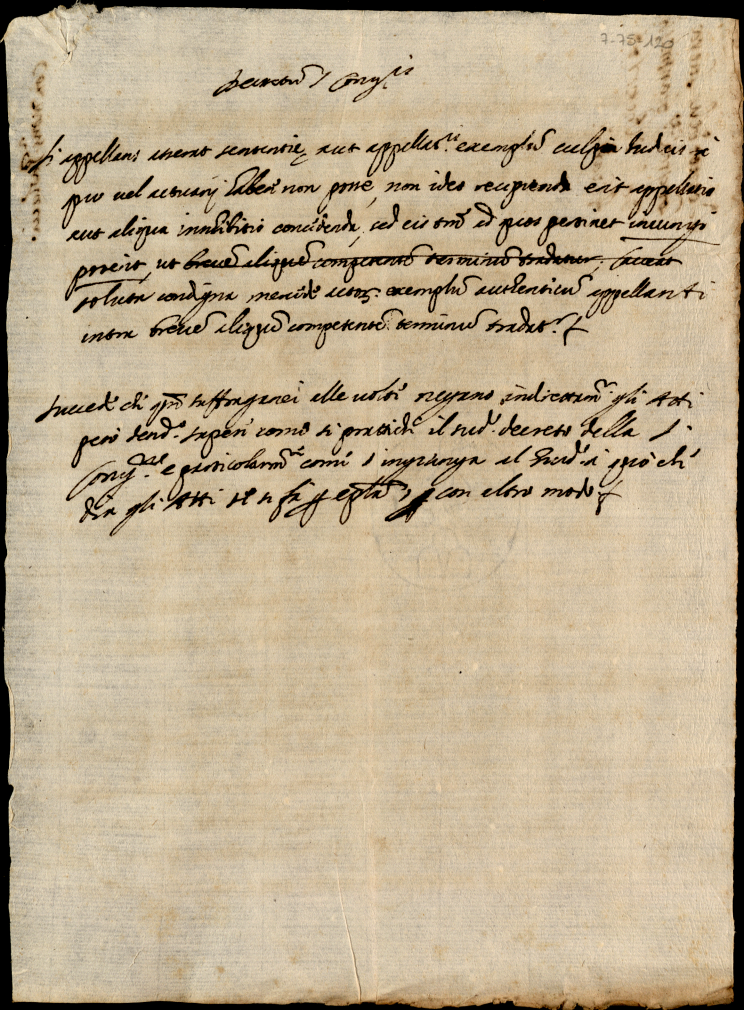 7-75-120
Decretũ S Congᵗⁱˢ
Si appellans asserat sententię, aut appellatⁱˢ exemplũ culpa Iudicis à
quo vel actuarij habere non posse, non ideo recipienda erit appellatio
aut aliqua inhibitio concedenda, sed eis tm̃ ad quos pertinet iniungi
poterit, ut brevẽ aliquẽ competentẽ terminũ tradatur,
soluta condigna mercede actorz. exemplũ authenticũ appellanti
intra brevẽ aliquẽ competentẽ terminũ tradatʳ
Succede che suffraganei alle volte negano gli Atti
però sapere come si pratichi il sudᵒ. decreto della S.
Congⁿᵉ. e particolarmᵗᵉ come s'ingiunga al Giud. à quo che
dia gli Atti se si fà con altro modo